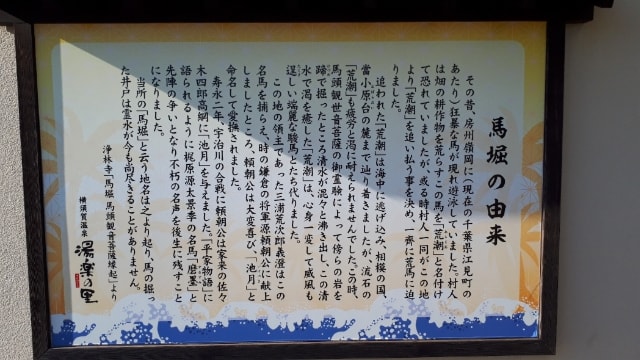 馬堀の由来
その昔、房州嶺岡に（現在の千葉県江見町の
あたり）狂暴な馬が現れ遊泳していました。村人
は畑の耕作物を荒らすこの馬を「荒潮」と名付け
て恐れていましたが、或る時村人一同がこの地
より「荒潮」を追い払う事を決め、一斉に荒馬に迫
りました。
追われた「荒潮」は海中へと逃げ込み、相模の国、
當小原台の麓まで辿り着きましたが、流石の
「荒潮」も疲労と渇に耐えられませんでした。この時、
馬頭観世音菩薩の御霊験によって傍らの岩を
蹄で掘ったところ清水が混々と沸き出し、この清
水で渇を癒した「荒潮」は、心身一変して威風も
逞しい端麗な駿馬と生れ代りました。
この地の領主であった三浦荒次郎義澄はこの
名馬を捕らえ、時の鎌倉の将軍源頼朝公に献上
しましたところ、頼朝公は大変喜び、「池月」と
命名して愛撫されました。
寿永二年、宇治川の合戦に頼朝公は家来の佐々
木四郎高綱に「池月」を与えました。「平家物語」に
語られるように梶原源太景季の名馬「磨墨」と
先陣の争いとなり不朽の名声を後生に残すこと
になりました。
当所の「馬堀」と云う地名は之より起り、馬の掘っ
た井戸は霊水が今も尚尽きることがありません。
浄林寺「馬堀 馬頭観世音菩薩縁起」より
横須賀温泉
湯楽の里